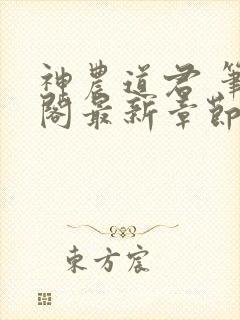 神農道君 筆
閣最新章節
東方宸